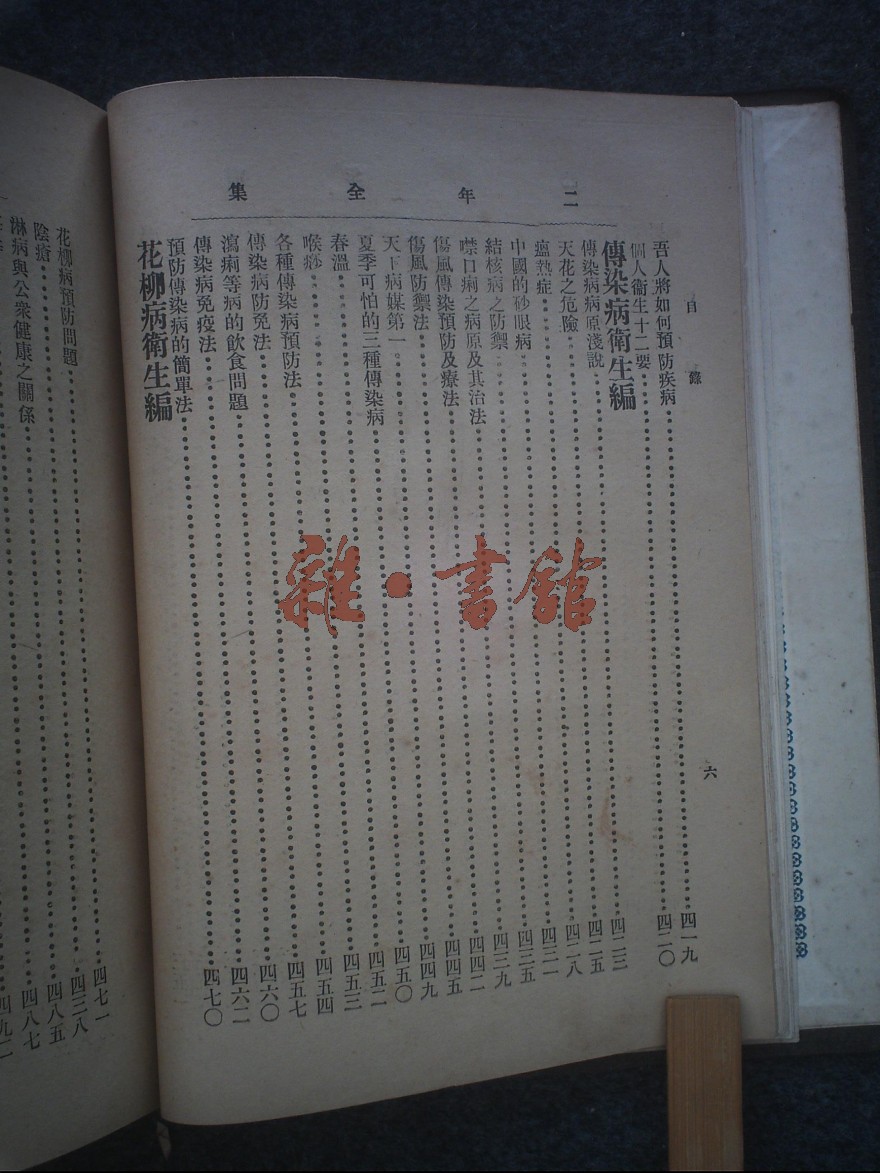 目錄
六
二年全集
吾人將如何預防疾病……四一九
個人衞生十二要……四二〇
傳染病衞生編
傳染病病原淺說……四二三
天花之危險……四二五
瘟熱症……四二八
中國的砂眼病……四三一
結核病之防禦……四三五
噤口痢之病原及其治法……四三九
傷風傳染預防及療法……四四二
傷風防禦法……四四五
天下病媒第一……四四九
夏季可怕的三種傳染病……四五〇
春溫……四五二
喉痧……四五三
各種傳染病預防法……四五四
傳染病防免法……四五七
瀉痢等病的飲食問題……四六〇
傳染病免疫法……四六二
預防傳染病的簡單法……四七〇
花柳病衞生編
花柳病預防問題……四七一
陰瘡……四三八
淋病與公衆健康之關係……四八五
四八七
四九二
雜·書館